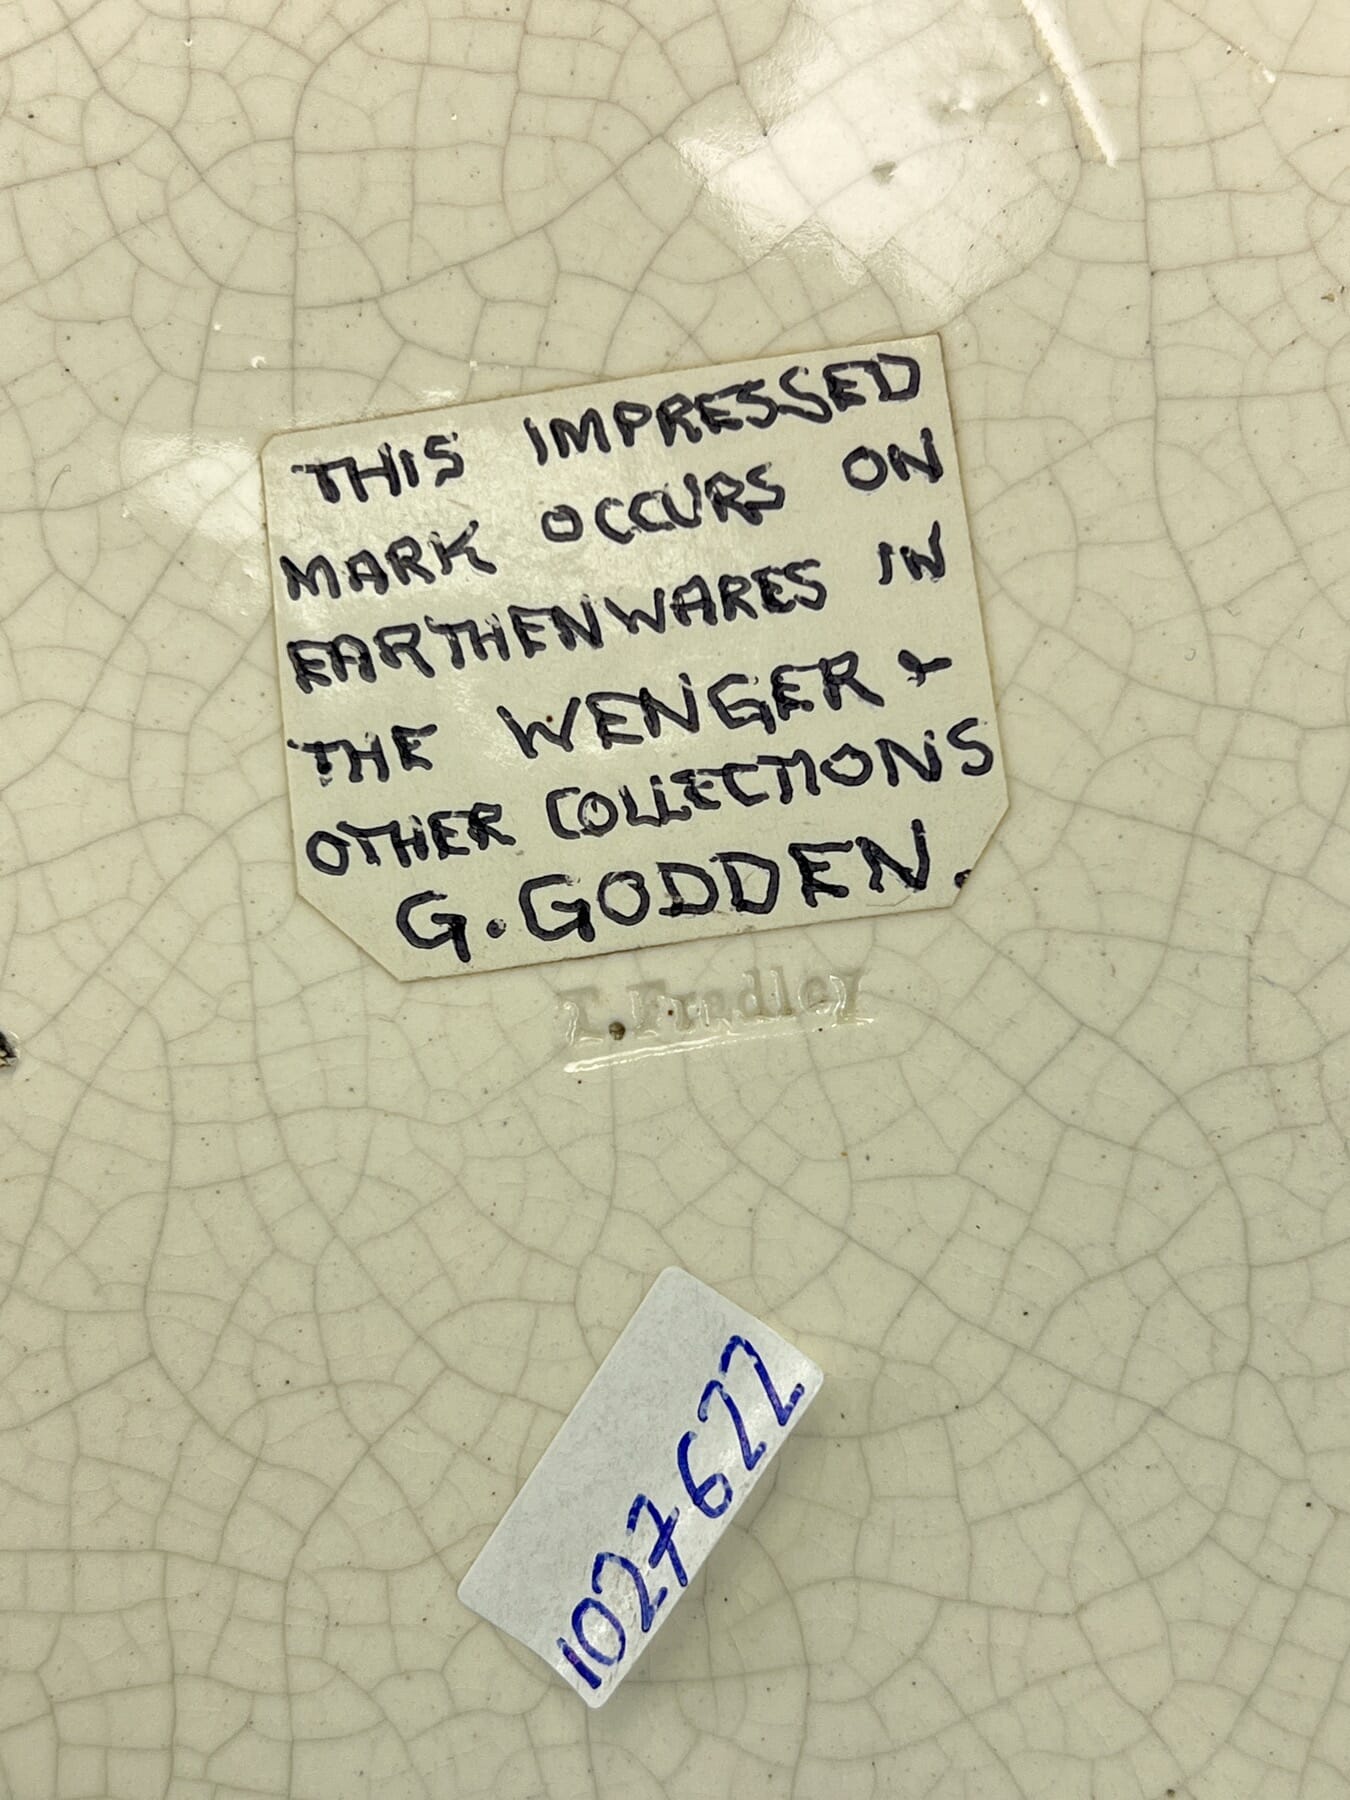 THIS IMPRESSED
MARK OCCURS ON
EARTHENWARES IN
THE WENGER &
OTHER COLLECTIONS
G. GODDEN.
T. Fradley
1027622